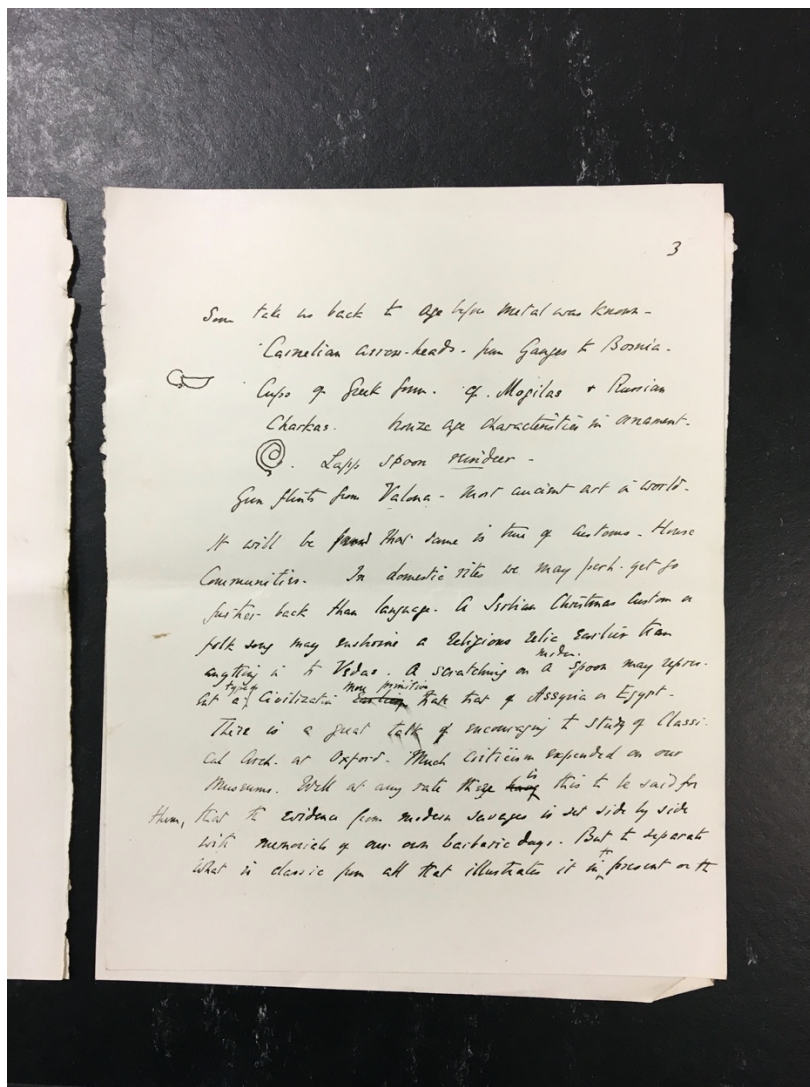 3
Some take us back to age before metal was known -
Carnelian arrow-heads - from Ganges to Bosnia.
Cups of Greek form. cf. Mogilas + Russian
Charkas. bronze age characteristics in ornament.
Lapp spoon reindeer -
Gun flints from Valona - most ancient art in world.
It will be found that same is true of Customs. House
Communities. In domestic rites we may perh. get go
further back than language. A Serbian Christmas Custom or
folk song may enshrine a religious relic earlier than
anything in the Vedas. A scratching on a modn. spoon may repres-
ent a type of Civilization Earlier more primitive than that of Assyria or Egypt -
There is a great talk of encouraging the study of Classi-
cal Arch. at Oxford. Much criticism expended on our
Museums. Well at any rate there is this to be said for
them, that the evidence from modern savages is set side by side
with memorials of our own barbaric days. But to separate
what is classic from all that illustrates it in the present or the